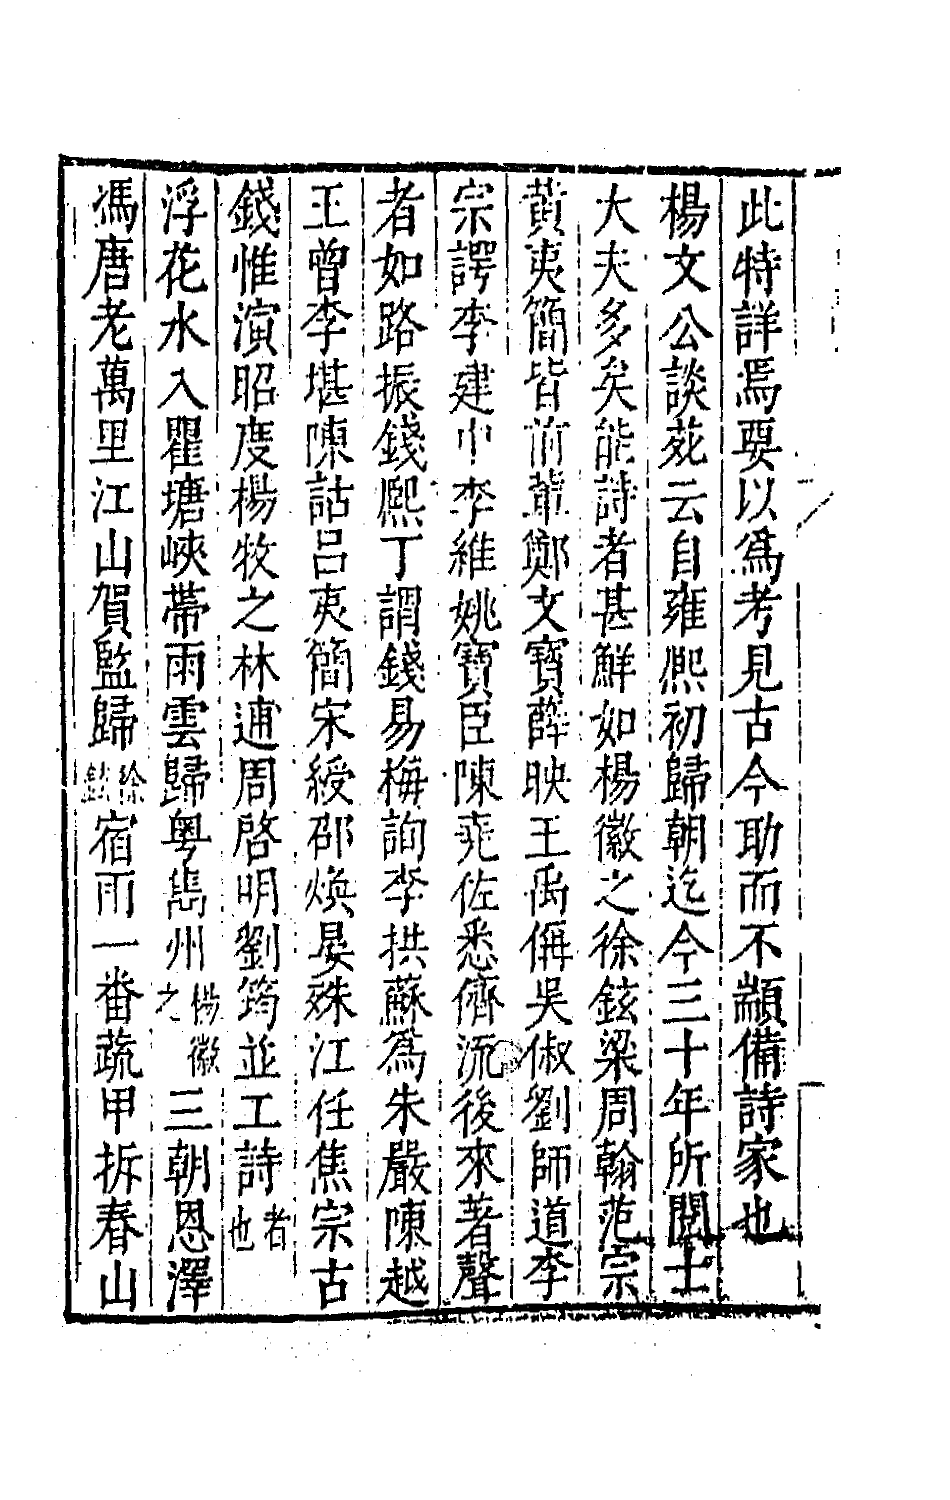 此特詳焉要以爲考見古今助而不顓備詩家也
楊文公談苑云自雍熙初歸朝迄今三十年所閱士
大夫多矣能詩者甚鮮如楊徽之徐鉉梁周翰范宗
黃夷簡皆前輩鄭文寶薛映王禹偁吳俶劉師道李
宗諤李建中李維姚寶臣陳堯佐悉儕流後來著聲
者如路振錢熙丁謂錢易梅詢李拱蘇爲朱嚴陳越
王曾李堪陳詁呂夷簡宋綬邵煥晏殊江任焦宗古
錢惟演昭度楊牧之林逋周啓明劉筠並工詩者也
浮花水入瞿塘峽帶雨雲歸粤雋州楊徽之三朝恩澤
馮唐老萬里江山賀監歸徐鉉宿雨一番蔬甲拆春山